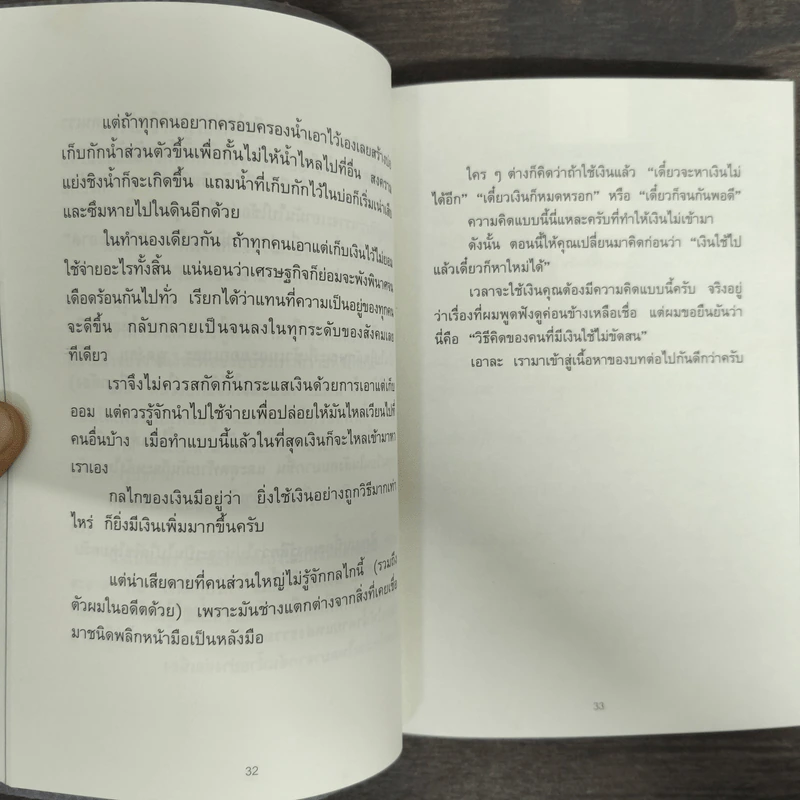 แต่ถ้าทุกคนอยากครอบครองน้ำเอาไว้เองเลยสร้าง
เก็บกักน้ำส่วนตัวขึ้นเพื่อกั้นไม่ให้น้ำไหลไปที่อื่น สงคราม
แย่งชิงน้ำก็จะเกิดขึ้น แถมน้ำที่เก็บกักไว้ในบ่อก็เริ่มเน่าเสีย
และซึมหายไปในดินอีกด้วย
ในทำนองเดียวกัน ถ้าทุกคนเอาแต่เก็บเงินไว้ไม่ยอม
ใช้จ่ายอะไรทั้งสิ้น แน่นอนว่าเศรษฐกิจก็ย่อมจะพังพินาศ
เดือดร้อนกันไปทั่ว เรียกได้ว่าแทนที่ความเป็นอยู่ของทุกคน
จะดีขึ้น กลับกลายเป็นจนลงในทุกระดับของสังคมเลย
ทีเดียว
เราจึงไม่ควรสกัดกั้นกระแสเงินด้วยการเอาแต่เก็บ
ออม แต่ควรรู้จักนำไปใช้จ่ายเพื่อปล่อยให้มันไหลเวียนไปที่
คนอื่นบ้าง เมื่อทำแบบนี้แล้วในที่สุดเงินก็จะไหลเข้ามาหา
เราเอง
กลไกของเงินมีอยู่ว่า ยิ่งใช้เงินอย่างถูกวิธีมากเท่า
ไหร่ ก็ยิ่งมีเงินเพิ่มมากขึ้นครับ
แต่น่าเสียดายที่คนส่วนใหญ่ไม่รู้จักกลไกนี้ (รวมถึง
ตัวผมในอดีตด้วย) เพราะมันช่างแตกต่างจากสิ่งที่เคยเชื่อ
มาชนิดพลิกหน้ามือเป็นหลังมือ
32
ใคร ๆ ต่างก็คิดว่าถ้าใช้เงินแล้ว “เดี๋ยวจะหาเงินไม่
ได้อีก” “เดี๋ยวเงินก็หมดหรอก” หรือ “เดี๋ยวก็จนกันพอดี”
ความคิดแบบนี้นี่แหละครับที่ทำให้เงินไม่เข้ามา
ดังนั้น ตอนนี้ให้คุณเปลี่ยนมาคิดก่อนว่า “เงินใช้ไป
แล้วเดี๋ยวก็หาใหม่ได้”
เวลาจะใช้เงินคุณต้องมีความคิดแบบนี้ครับ จริงอยู่
ว่าเรื่องที่ผมพูดฟังดูค่อนข้างเหลือเชื่อ แต่ผมขอยืนยันว่า
นี่คือ “วิธีคิดของคนที่มีเงินใช้ไม่ขัดสน”
เอาละ เรามาเข้าสู่เนื้อหาของบทต่อไปกันดีกว่าครับ
33